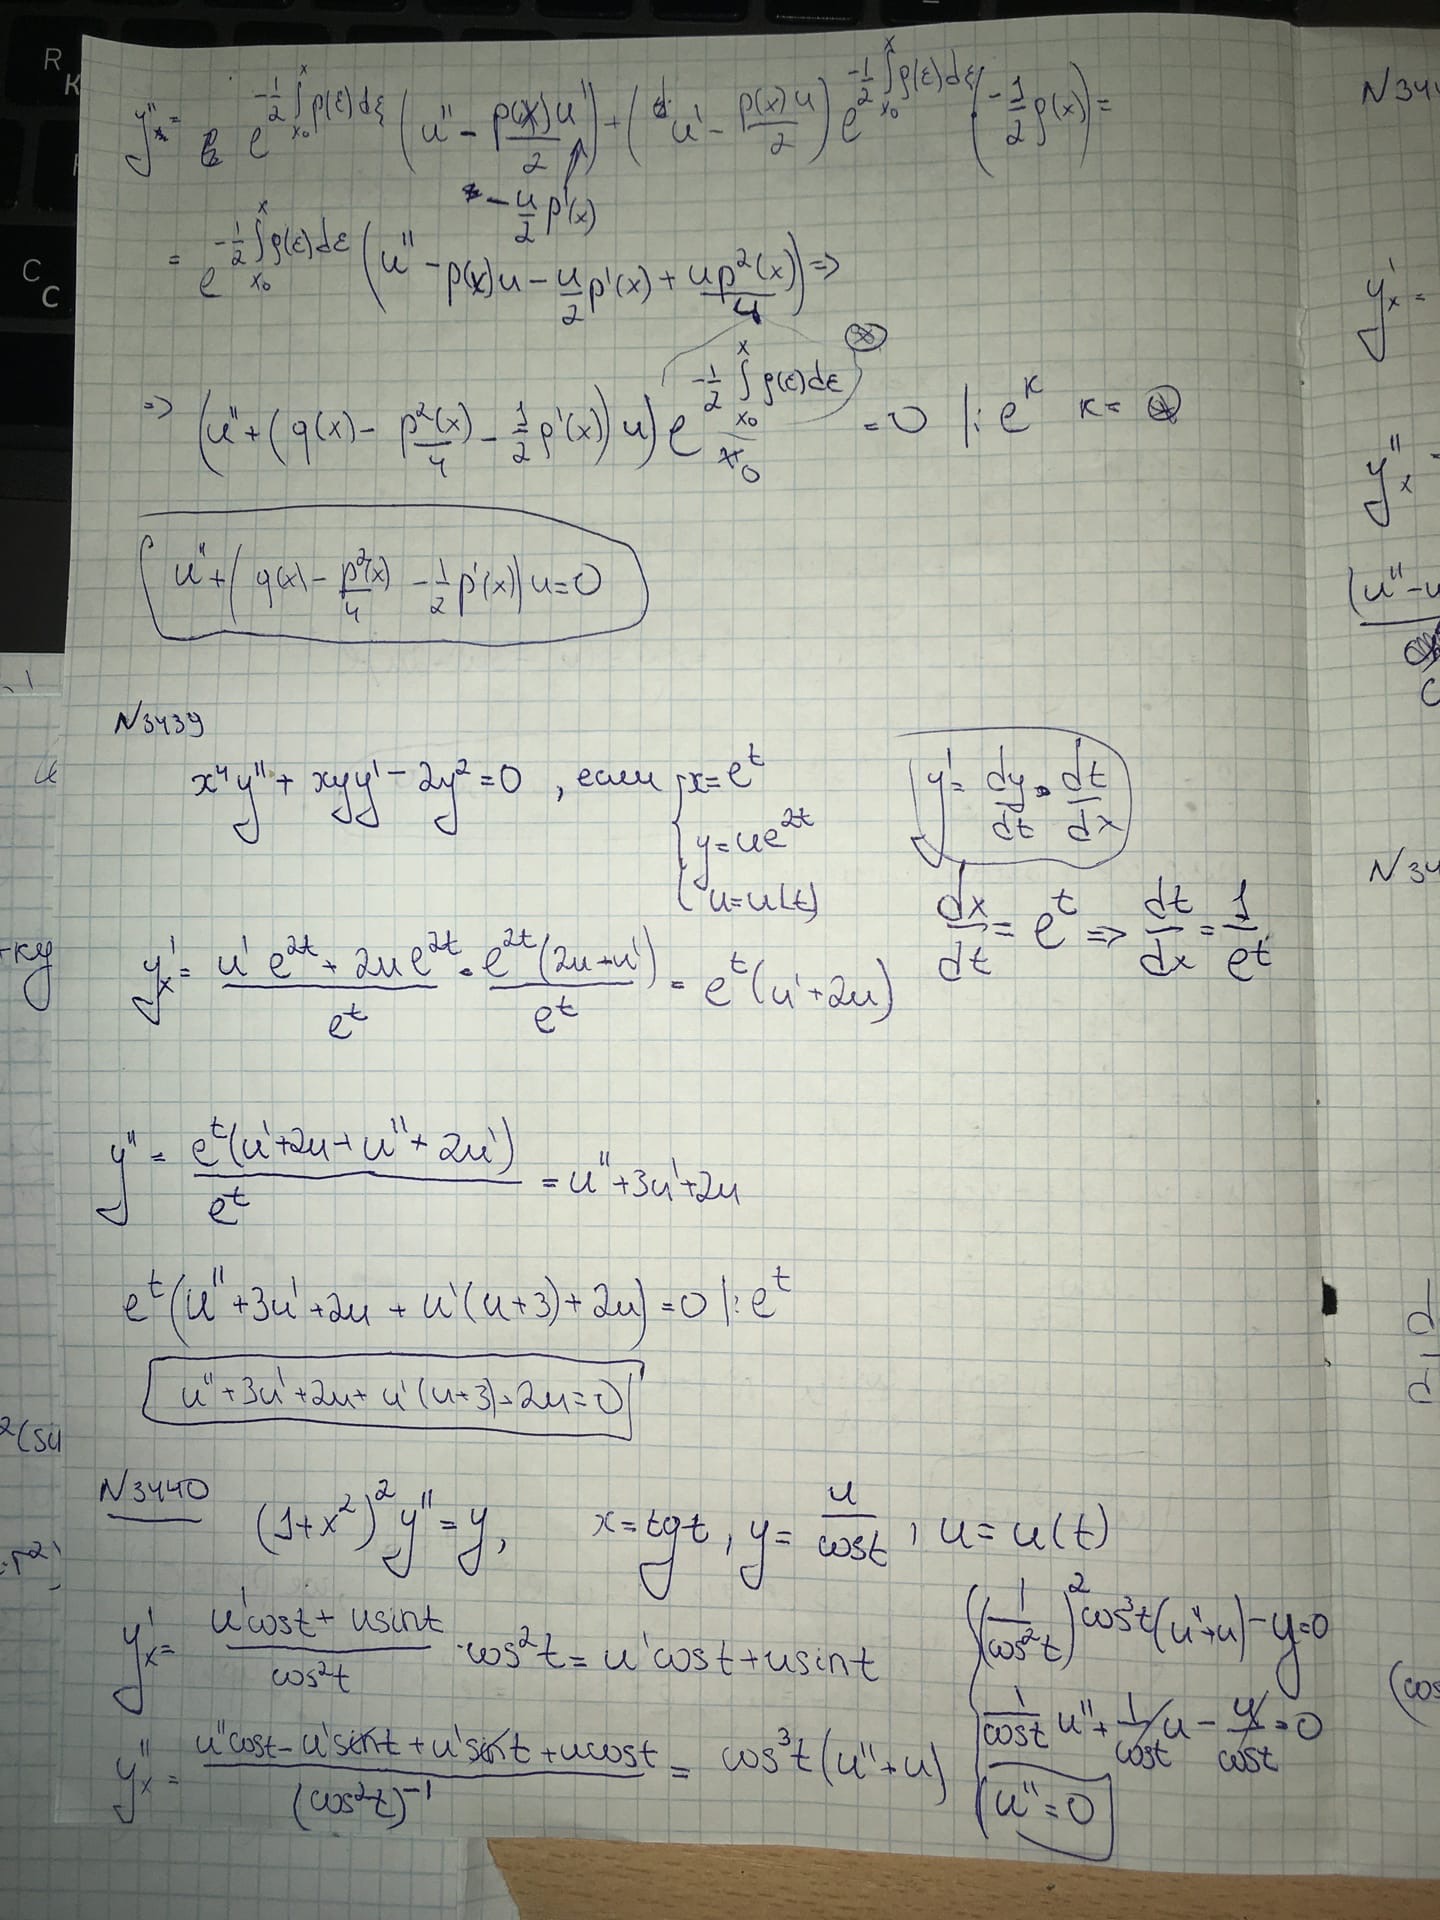 y''ₓ = e^{-1/2 ∫_{x₀}^{x} p(ξ)dξ} (u'' - p(x)u'/2) + (u' - p(x)u/2) e^{-1/2 ∫_{x₀}^{x} p(ξ)dξ} (-1/2 p(x)) =
- u/2 p'(x)
= e^{-1/2 ∫_{x₀}^{x} p(ξ)dξ} (u'' - p(x)u - u/2 p'(x) + up²(x)/4) ⇒
⇒ (u'' + (q(x) - p²(x)/4 - 1/2 p'(x)) u) e^{-1/2 ∫_{x₀}^{x} p(ξ)dξ} = 0 |: e^k k = ⊛
u'' + (q(x) - p²(x)/4 - 1/2 p'(x)) u = 0
N3439
x⁴y'' + xyy' - 2y² = 0, если { x = e^t
y = ue^{2t}
u = u(t)
y' = dy/dt · dt/dx
dx/dt = e^t ⇒ dt/dx = 1/e^t
y'ₓ = (u'e^{2t} + 2ue^{2t})/e^t = e^{2t}(2u + u')/e^t = e^t(u' + 2u)
y'' = e^t(u' + 2u + u'' + 2u')/e^t = u'' + 3u' + 2u
e^t(u'' + 3u' + 2u + u'(u+3) + 2u) = 0 |: e^t
u'' + 3u' + 2u + u'(u+3) + 2u = 0
N3440
(1+x²)²y'' = y, x = tgt, y = u/cost, u = u(t)
y'ₓ = (u'cost + usint)/cos²t · cos²t = u'cost + usint
y''ₓ = (u''cost - u'sint + u'sint + ucost)/(cos²t)⁻¹ = cos³t(u'' + u)
(1/cos²t)² cos³t(u'' + u) - y = 0
1/cost u'' + 1/cost u - u/cost = 0
u'' = 0
N344
y'ₓ =
y''ₓ =
(u'' - u
N34
+ky
(cos